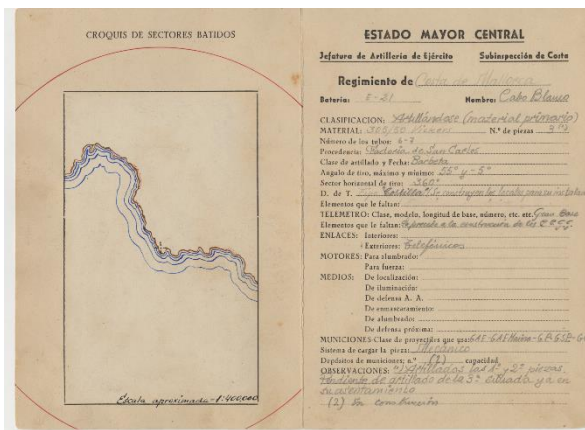 CROQUIS DE SECTORES BATIDOS
Escala aproximada - 1:400.000
ESTADO MAYOR CENTRAL
Jefatura de Artillería de Ejército Subinspección de Costa
Regimiento de Costa de Mallorca
Batería: E-21 Nombre: Cabo Blanco
CLASIFICACION: Artillándose (material primario)
MATERIAL: Vickers N.º de piezas 3 (1)
Número de los tubos: 6-7
Procedencia: de San Carlos
Clase de artillado y Fecha: Barbeta
Angulo de tiro, máximo y mínimo: 55º y -5º
Sector horizontal de tiro: 360º
D. de T. Tipo "Costilla". Se construyen los locales para su
Elementos que le faltan:
TELEMETRO: Clase, modelo, longitud de base, número, etc. etc. Gran Base
Elementos que le faltan: a la construcción de los
ENLACES: Interiores:
Exteriores: Telefónicos
MOTORES: Para alumbrado:
Para fuerza:
MEDIOS: De localización:
De iluminación:
De defensa A. A.
De enmascaramiento:
De alumbrado:
De defensa próxima:
MUNICIONES: Clase de proyectiles que usa:
Sistema de cargar la pieza: Mecánico
Depósitos de municiones: n.º (2) capacidad
OBSERVACIONES: (1) Artilladas las 1ª y 2ª piezas.
Pendiente de artillado de la 3ª situada ya en
su asentamiento
(2) En construcción